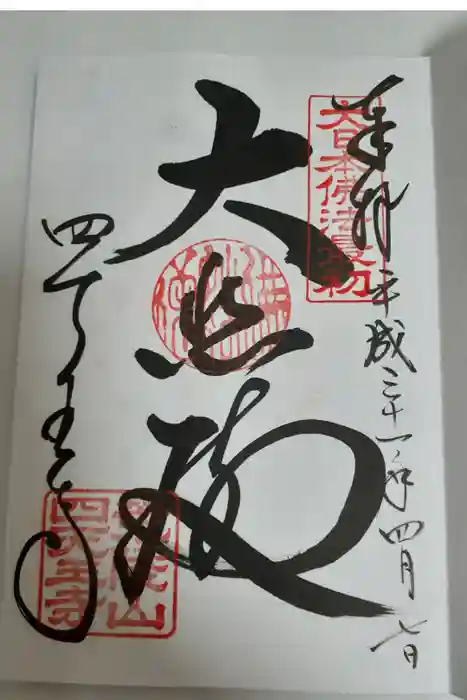 奉拝 平成三十一年四月七日
大日本佛法最初
大悲殿
四天王寺
荒陵山
四天王寺